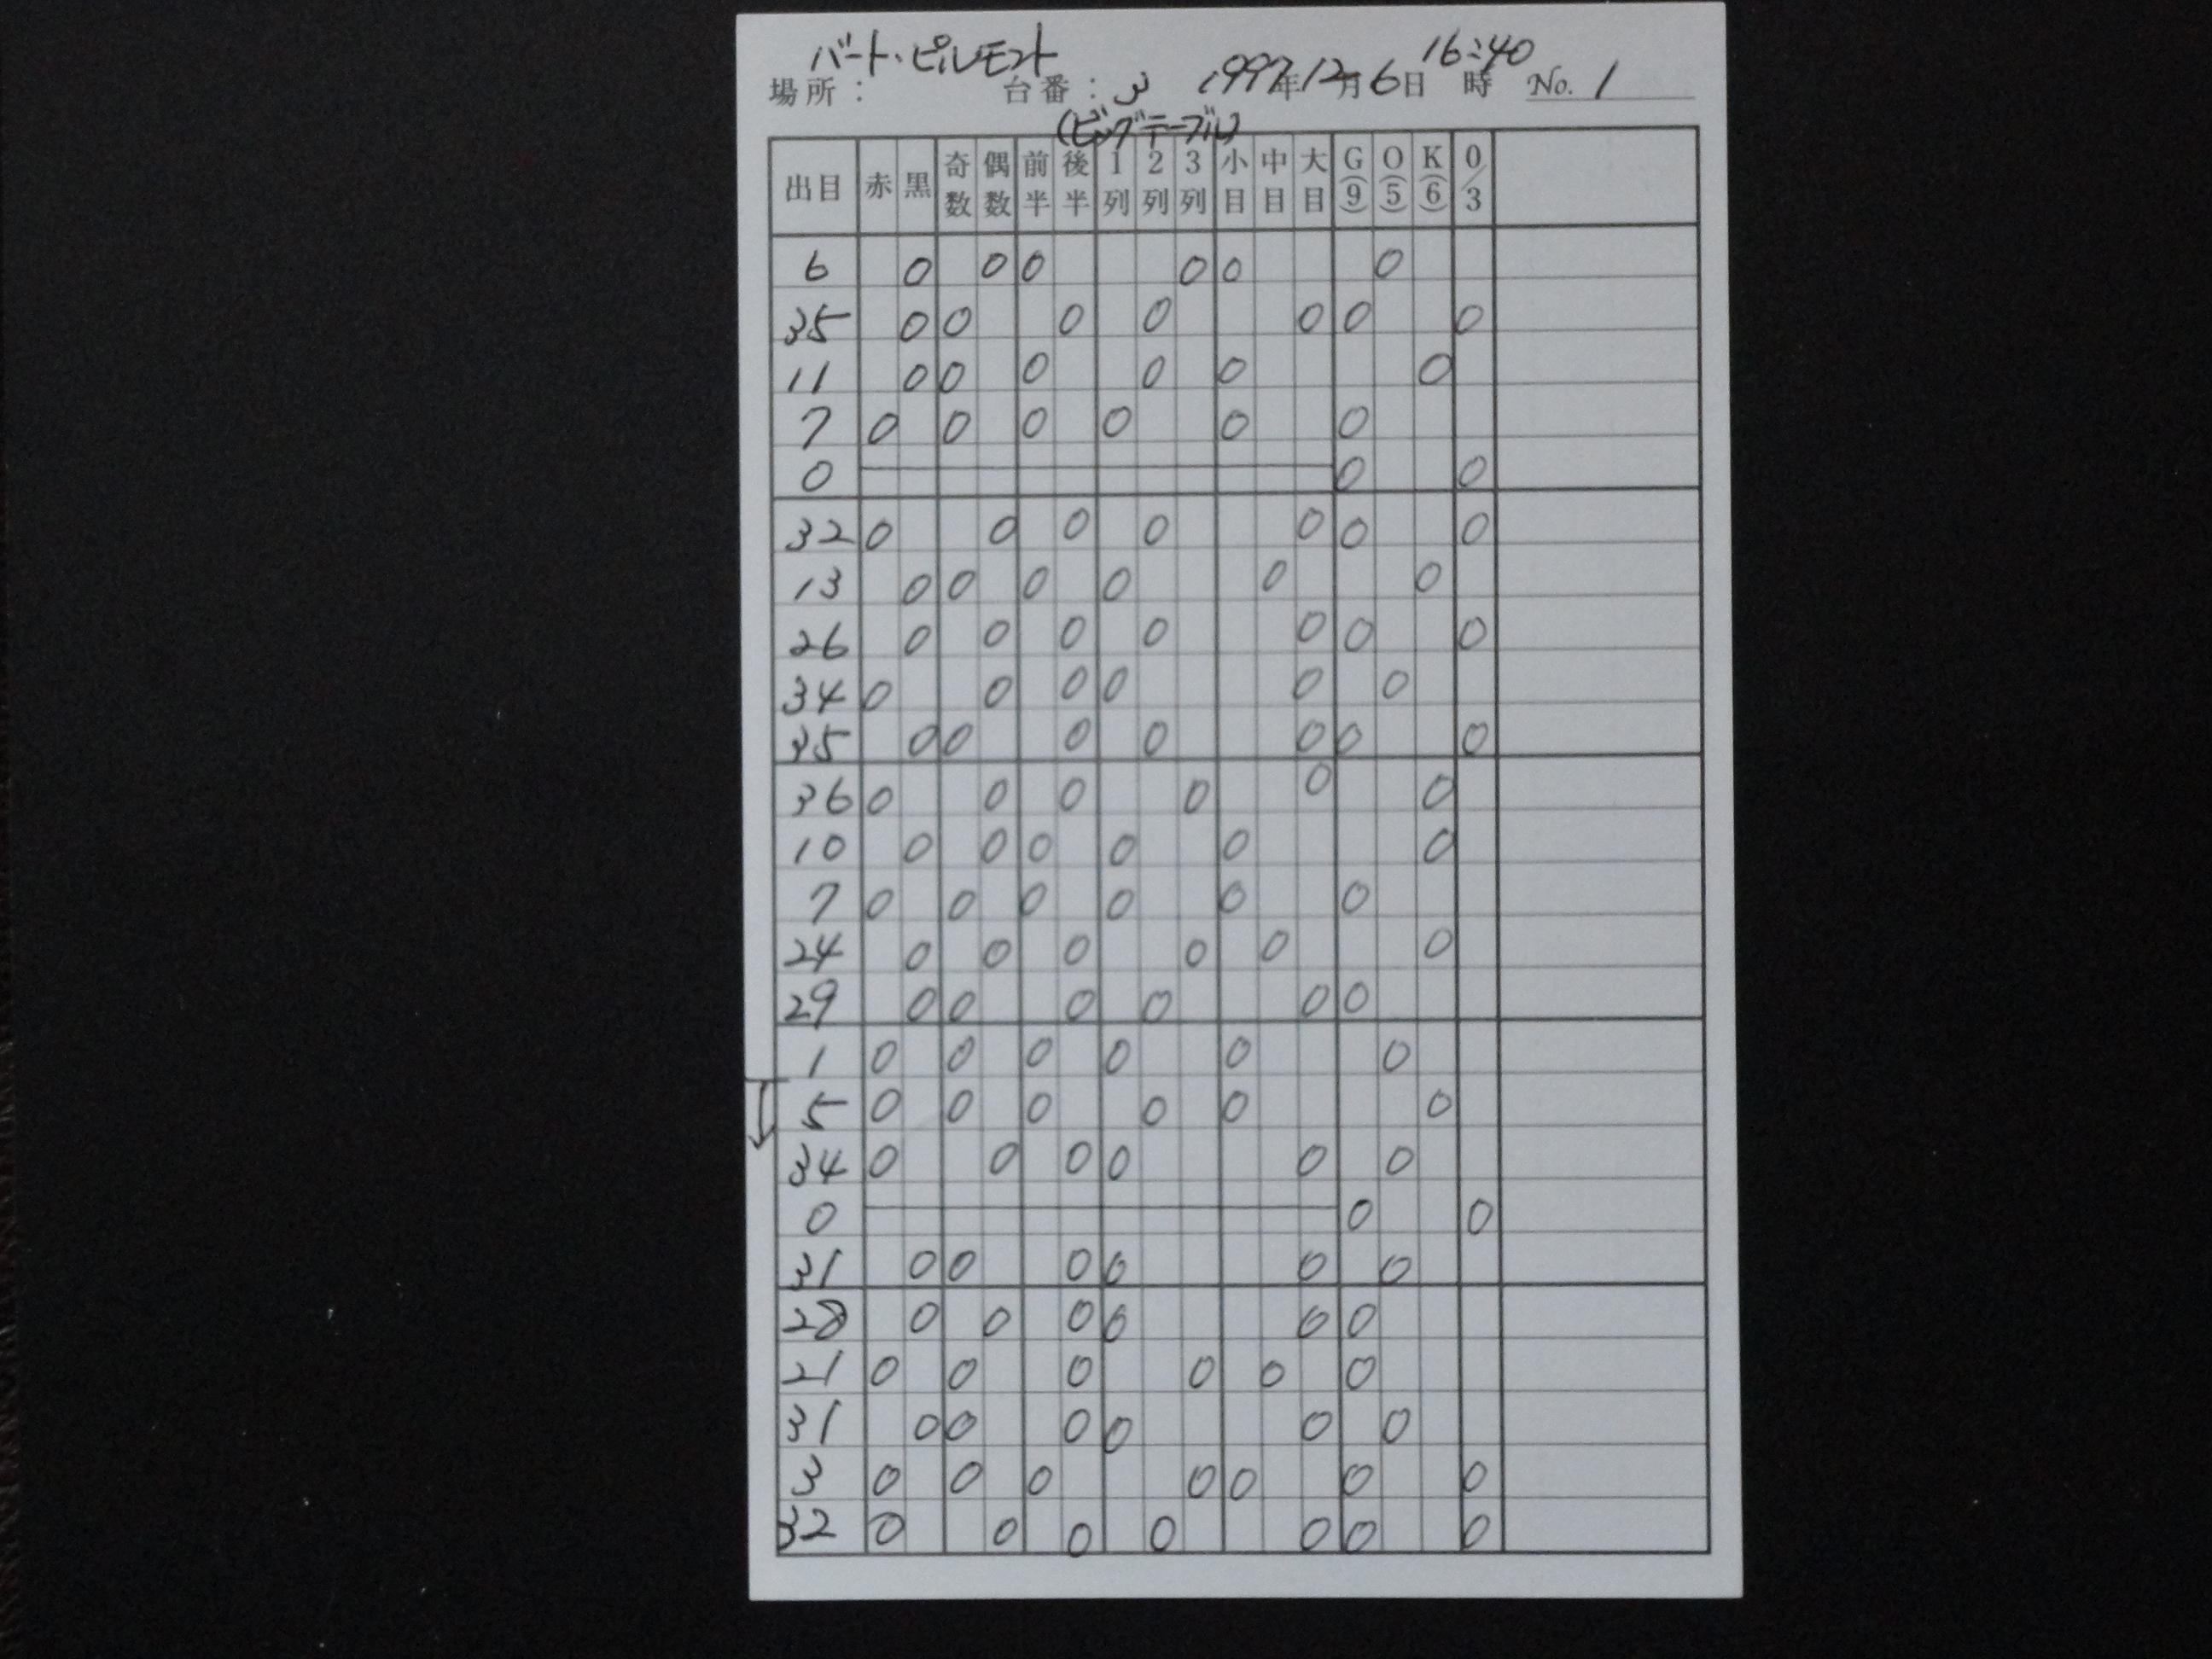 バート・ピルモント
場所: 台番: 3 1997年12月6日 16:40時 No. 1
(ビッグテーブル)
出目 赤 黒 奇数 偶数 前半 後半 1列 2列 3列 小目 中目 大目 G(9) O(5) K(6) 0/3
6 0 0 0 0 0 0
35 0 0 0 0 0 0 0
11 0 0 0 0 0 0
7 0 0 0 0 0 0
0 0 0
32 0 0 0 0 0 0 0
13 0 0 0 0 0 0
26 0 0 0 0 0 0 0
34 0 0 0 0 0 0
35 0 0 0 0 0 0 0
36 0 0 0 0 0 0
10 0 0 0 0 0 0
7 0 0 0 0 0 0
24 0 0 0 0 0 0
29 0 0 0 0 0 0
1 0 0 0 0 0 0
5 0 0 0 0 0 0
34 0 0 0 0 0 0
0 0 0
31 0 0 0 0 0 0
28 0 0 0 0 0 0
21 0 0 0 0 0 0
31 0 0 0 0 0 0
3 0 0 0 0 0 0 0
32 0 0 0 0 0 0 0